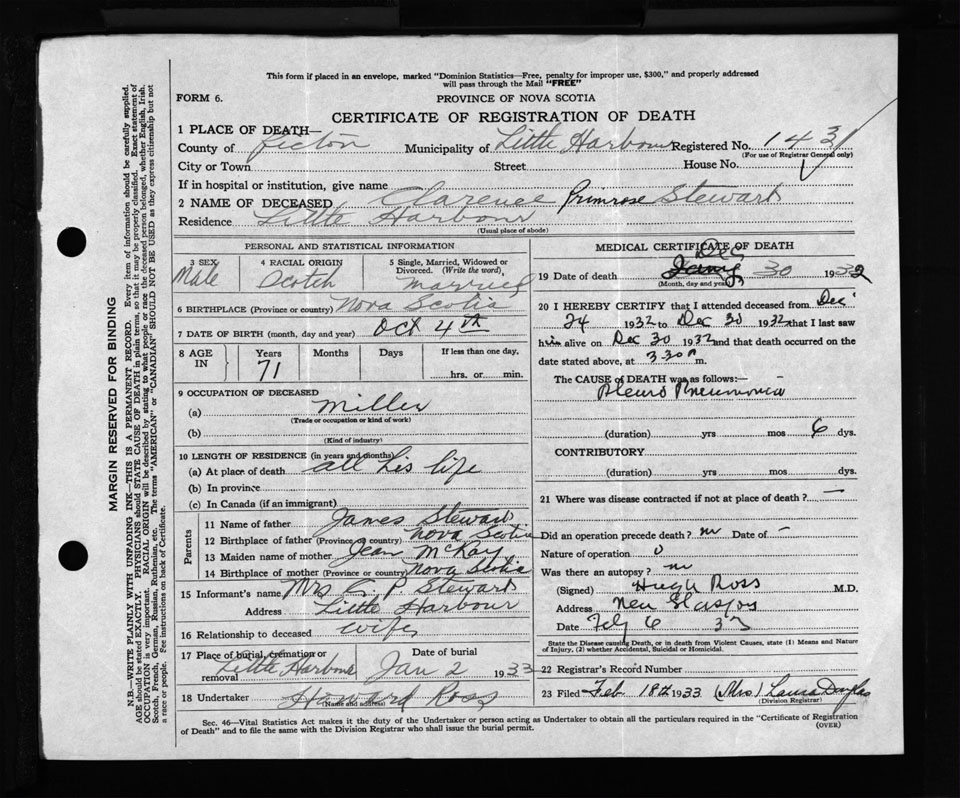 This form if placed in an envelope, marked "Dominion Statistics—Free, penalty for improper use, $300," and properly addressed
will pass through the Mail "FREE"
FORM 6.
PROVINCE OF NOVA SCOTIA
CERTIFICATE OF REGISTRATION OF DEATH
1 PLACE OF DEATH—
County of Pictou Municipality of Little Harbour Registered No. 1431
(For use of Registrar General only)
City or Town Street House No.
If in hospital or institution, give name
2 NAME OF DECEASED Clarence Primrose Stewart
Residence Little Harbour
(Usual place of abode)
PERSONAL AND STATISTICAL INFORMATION
3 SEX 4 RACIAL ORIGIN 5 Single, Married, Widowed or
Divorced. (Write the word)
Male Scotch married
6 BIRTHPLACE (Province or country) Nova Scotia
7 DATE OF BIRTH (month, day and year) Oct 4th
8 AGE IN Years Months Days If less than one day,
71 hrs. or min.
9 OCCUPATION OF DECEASED
(a) Miller
(Trade or occupation or kind of work)
(b)
(Kind of industry)
10 LENGTH OF RESIDENCE (in years and months)
(a) At place of death all his life
(b) In province
(c) In Canada (if an immigrant)
Parents
11 Name of father James Stewart
12 Birthplace of father (Province or country) Nova Scotia
13 Maiden name of mother Jean McKay
14 Birthplace of mother (Province or country) Nova Scotia
15 Informant's name Mrs C. P. Stewart
Address Little Harbour
16 Relationship to deceased wife
17 Place of burial, cremation or Date of burial
removal Little Harbour Jan 2 1933
18 Undertaker Howard Ross
(Name and address)
MEDICAL CERTIFICATE OF DEATH
19 Date of death Dec 30 1932
(Month, day and year)
20 I HEREBY CERTIFY that I attended deceased from Dec
24 1932 to Dec 30 1932 that I last saw
him alive on Dec 30 1932 and that death occurred on the
date stated above, at 3.30 m.
The CAUSE OF DEATH was as follows:—
Pleuro Pneumonia
(duration) yrs mos 6 dys.
CONTRIBUTORY
(duration) yrs mos dys.
21 Where was disease contracted if not at place of death? —
Did an operation precede death? no Date of —
Nature of operation
Was there an autopsy? no
(Signed) Hugh Ross M.D.
Address New Glasgow
Date Feb 6 33
State the Disease causing Death, or in death from Violent Causes, state (1) Means and Nature
of Injury, (2) whether Accidental, Suicidal or Homicidal.
22 Registrar's Record Number
23 Filed Feb 18th 1933 (Mrs) Laura Douglas
(Division Registrar)
Sec. 46—Vital Statistics Act makes it the duty of the Undertaker or person acting as Undertaker to obtain all the particulars required in the "Certificate of Registration
of Death" and to file the same with the Division Registrar who shall issue the burial permit.
(OVER)
MARGIN RESERVED FOR BINDING
N.B.—WRITE PLAINLY WITH UNFADING INK—THIS IS A PERMANENT RECORD. Every item of information should be carefully supplied.
AGE should be stated EXACTLY. PHYSICIANS should STATE CAUSE OF DEATH in plain terms, so that it may be properly classified. Exact statement of
OCCUPATION is very important. RACIAL ORIGIN will be described by stating to what people or race the deceased person belonged, whether English, Irish,
Scotch, French, German, Russian, Ruthenian, etc. The terms "AMERICAN" or "CANADIAN" SHOULD NOT BE USED as they express citizenship but not
a race or people. See instructions on back of Certificate.